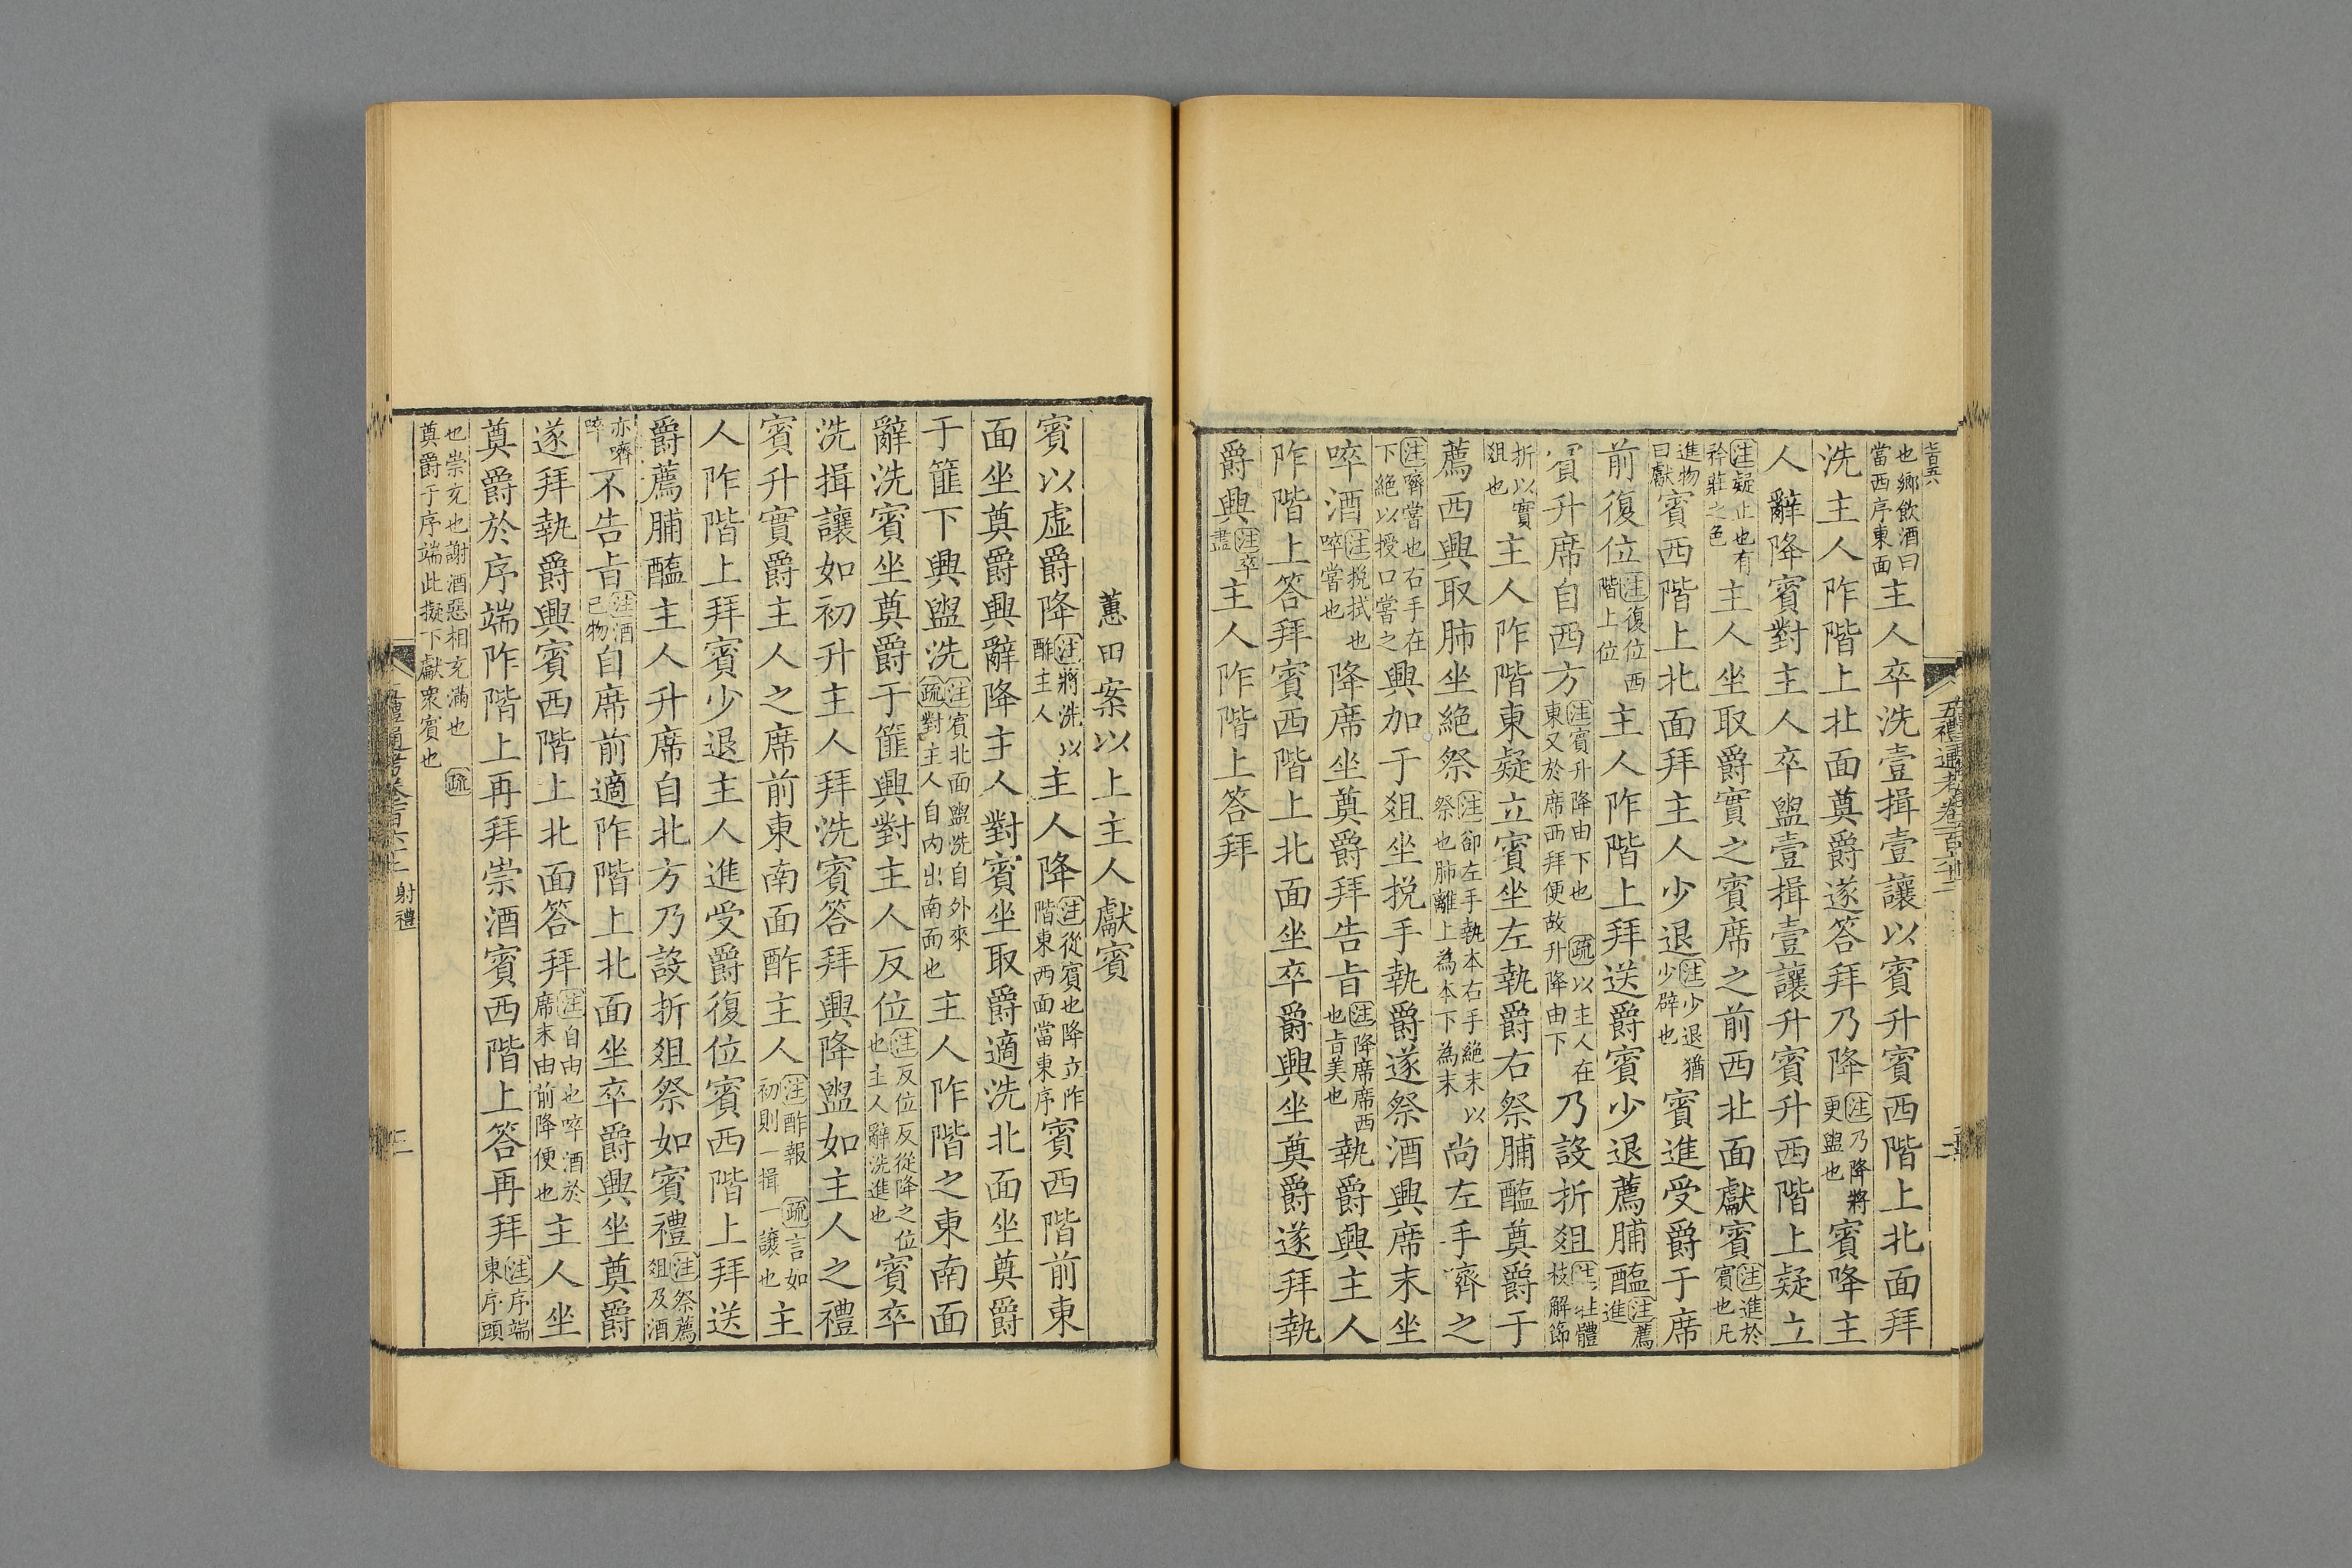 也鄉飲酒曰當西序東面主人卒洗壹揖壹讓以賓升賓西階上北面拜
洗主人阼階上北面奠爵遂答拜乃降注乃降將更盥也賓降主
人辭降賓對主人卒盥壹揖壹讓升賓升西階上疑立
注疑止也有矜莊之色主人坐取爵實之賓席之前西北面獻賓注進於賓也凡
進物曰獻賓西階上北面拜主人少退注少退猶少辟也賓進受爵于席
前復位注復位西階上位主人阼階上拜送爵賓少退薦脯醢注薦進
賓升席自西方注賓升降由下也疏以主人在東又於席西拜便故升降由下乃設折俎注牲體枝解節
折以實俎也主人阼階東疑立賓坐左執爵右祭脯醢奠爵于
薦西興取肺坐絕祭注卻左手執本右手絕末以祭也肺離上為本下為末尚左手嚌之
注嚌嘗也右手在下絕以授口嘗之興加于俎坐挩手執爵遂祭酒興席末坐
啐酒注挩拭也啐嘗也降席坐奠爵拜告旨注降席席西也旨美也執爵興主人
阼階上答拜賓西階上北面坐卒爵興坐奠爵遂拜執
爵興注卒盡主人阼階上答拜
蕙田案以上主人獻賓
賓以虛爵降注將洗以酢主人主人降注從賓也降立阼階東西面當東序賓西階前東
面坐奠爵興辭降主人對賓坐取爵適洗北面坐奠爵
于篚下興盥洗注賓北面盥洗自外來疏對主人自內出南面也主人阼階之東南面
辭洗賓坐奠爵于篚興對主人反位注反位反從降之位也主人辭洗進也賓卒
洗揖讓如初升主人拜洗賓答拜興降盥如主人之禮
賓升實爵主人之席前東南面酢主人注酢報疏言如初則一揖一讓也主
人阼階上拜賓少退主人進受爵復位賓西階上拜送
爵薦脯醢主人升席自北方乃設折俎祭如賓禮注祭薦俎及酒
亦嚌啐不告旨注酒己物自席前適阼階上北面坐卒爵興坐奠爵
遂拜執爵興賓西階上北面答拜注自由也啐酒於席末由前降便也主人坐
奠爵於序端阼階上再拜崇酒賓西階上答再拜注序端東序頭
也崇充也謝酒惡相充滿也疏奠爵于序端此擬下獻衆賓也
射禮